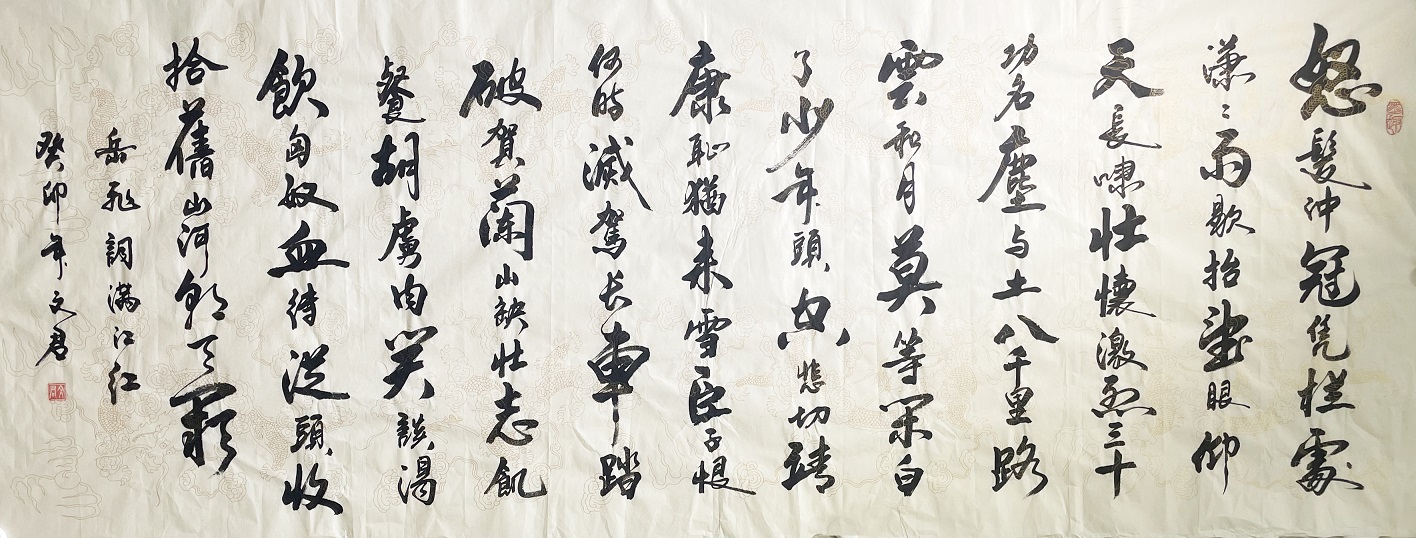 怒髮沖冠凭栏處
潇〻雨歇抬望眼仰
天長嘯壮懷激烈三十
功名塵与土八千里路
雲和月莫等闲白
了少年頭空悲切靖
康恥猶未雪臣子恨
何時滅驾长車踏
破賀蘭山缺壮志飢
餐胡虜肉笑談渴
飲匈奴血待從頭收
拾舊山河朝天闕
岳飛詞满江红
癸卯年文君